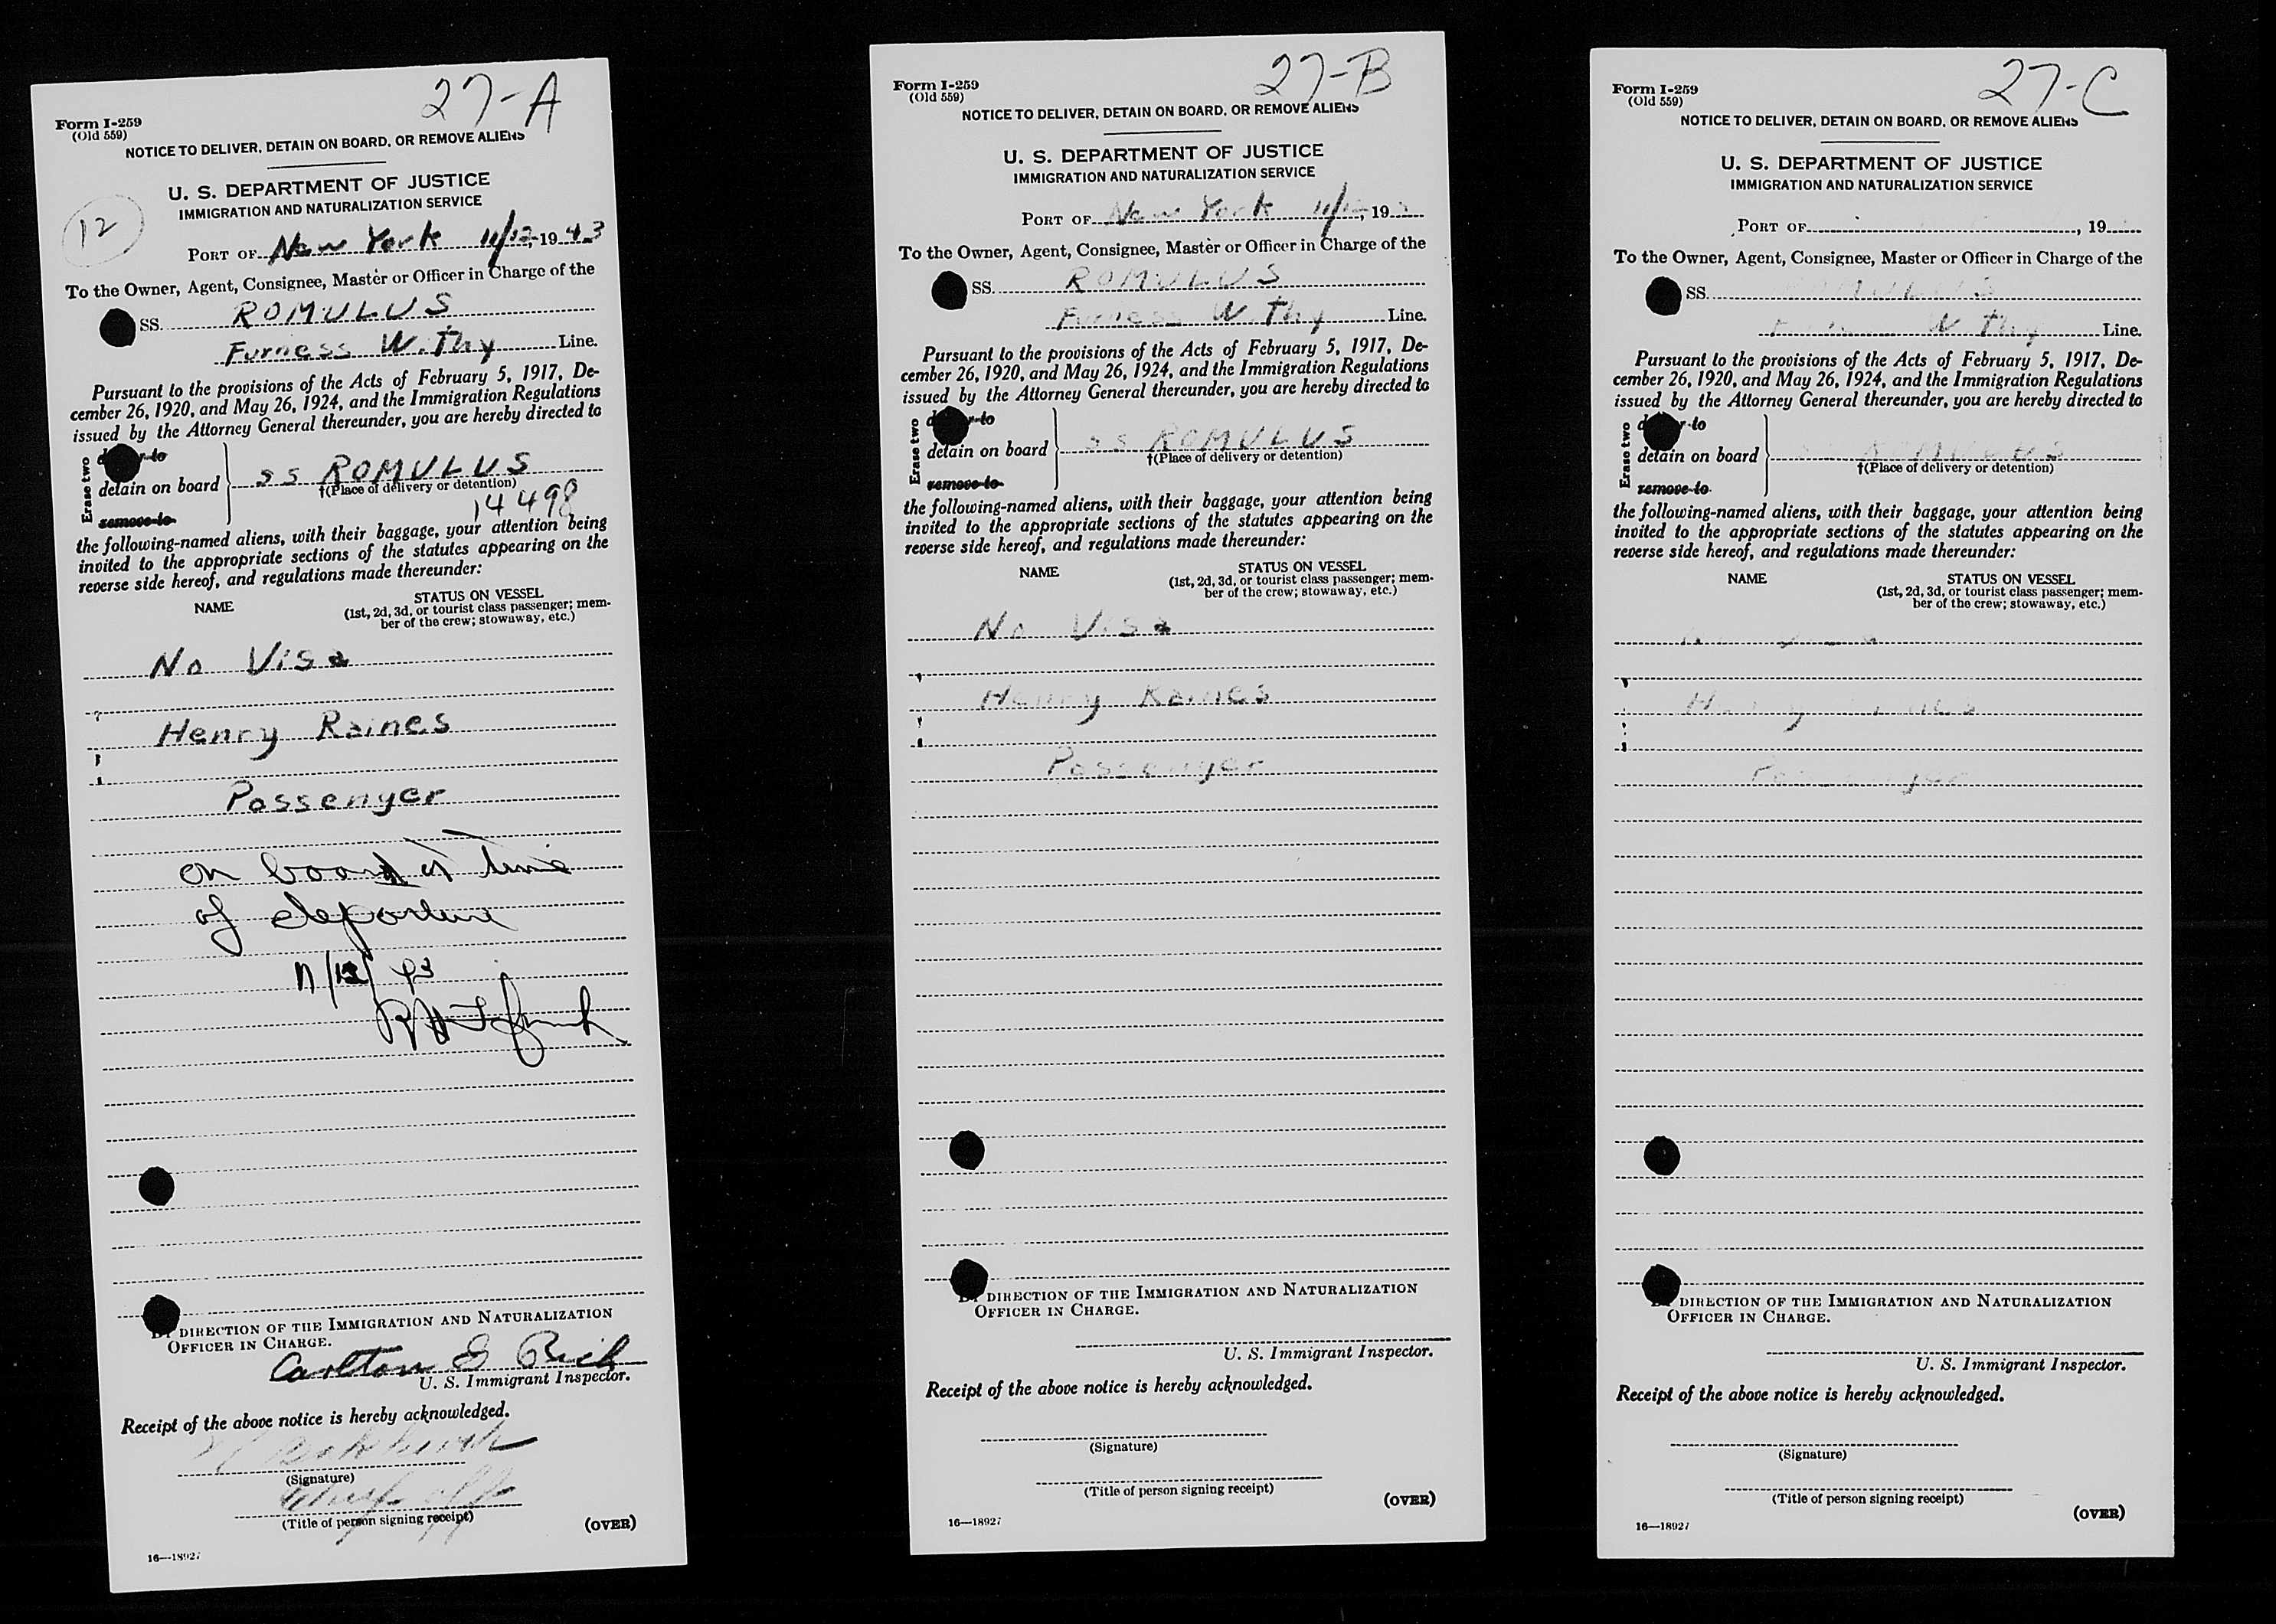 27-A
Form I-259
(Old 559)
NOTICE TO DELIVER, DETAIN ON BOARD, OR REMOVE ALIENS
U. S. DEPARTMENT OF JUSTICE
IMMIGRATION AND NATURALIZATION SERVICE
12
PORT OF New York 11/12, 1943
To the Owner, Agent, Consignee, Master or Officer in Charge of the
SS. ROMULUS
Furness Withy Line.
Pursuant to the provisions of the Acts of February 5, 1917, De-
cember 26, 1920, and May 26, 1924, and the Immigration Regulations
issued by the Attorney General thereunder, you are hereby directed to
Erase two
detain on board } SS ROMULUS
†(Place of delivery or detention)
remove to
14498
the following-named aliens, with their baggage, your attention being
invited to the appropriate sections of the statutes appearing on the
reverse side hereof, and regulations made thereunder:
NAME STATUS ON VESSEL
(1st, 2d, 3d, or tourist class passenger; mem-
ber of the crew; stowaway, etc.)
No Visa
Henry Raines
Passenger
on board at time
of departure
11/12/43
BY DIRECTION OF THE IMMIGRATION AND NATURALIZATION
OFFICER IN CHARGE.
Carlton
U. S. Immigrant Inspector.
Receipt of the above notice is hereby acknowledged.
(Signature)
Chief off
(Title of person signing receipt)
(OVER)
16—18927
27-B
Form I-259
(Old 559)
NOTICE TO DELIVER, DETAIN ON BOARD, OR REMOVE ALIENS
U. S. DEPARTMENT OF JUSTICE
IMMIGRATION AND NATURALIZATION SERVICE
PORT OF New York 11/12, 19
To the Owner, Agent, Consignee, Master or Officer in Charge of the
SS. ROMULUS
Furness Withy Line.
Pursuant to the provisions of the Acts of February 5, 1917, De-
cember 26, 1920, and May 26, 1924, and the Immigration Regulations
issued by the Attorney General thereunder, you are hereby directed to
Erase two
detain on board } SS ROMULUS
†(Place of delivery or detention)
remove to
the following-named aliens, with their baggage, your attention being
invited to the appropriate sections of the statutes appearing on the
reverse side hereof, and regulations made thereunder:
NAME STATUS ON VESSEL
(1st, 2d, 3d, or tourist class passenger; mem-
ber of the crew; stowaway, etc.)
No Visa
Henry Raines
Passenger
BY DIRECTION OF THE IMMIGRATION AND NATURALIZATION
OFFICER IN CHARGE.
U. S. Immigrant Inspector.
Receipt of the above notice is hereby acknowledged.
(Signature)
(Title of person signing receipt)
(OVER)
16—18927
27-C
Form I-259
(Old 559)
NOTICE TO DELIVER, DETAIN ON BOARD, OR REMOVE ALIENS
U. S. DEPARTMENT OF JUSTICE
IMMIGRATION AND NATURALIZATION SERVICE
PORT OF , 19
To the Owner, Agent, Consignee, Master or Officer in Charge of the
SS. ROMULUS
Withy Line.
Pursuant to the provisions of the Acts of February 5, 1917, De-
cember 26, 1920, and May 26, 1924, and the Immigration Regulations
issued by the Attorney General thereunder, you are hereby directed to
Erase two
detain on board } ROMULUS
†(Place of delivery or detention)
remove to
the following-named aliens, with their baggage, your attention being
invited to the appropriate sections of the statutes appearing on the
reverse side hereof, and regulations made thereunder:
NAME STATUS ON VESSEL
(1st, 2d, 3d, or tourist class passenger; mem-
ber of the crew; stowaway, etc.)
Henry Raines
Passenger
BY DIRECTION OF THE IMMIGRATION AND NATURALIZATION
OFFICER IN CHARGE.
U. S. Immigrant Inspector.
Receipt of the above notice is hereby acknowledged.
(Signature)
(Title of person signing receipt)
(OVER)
16—18927